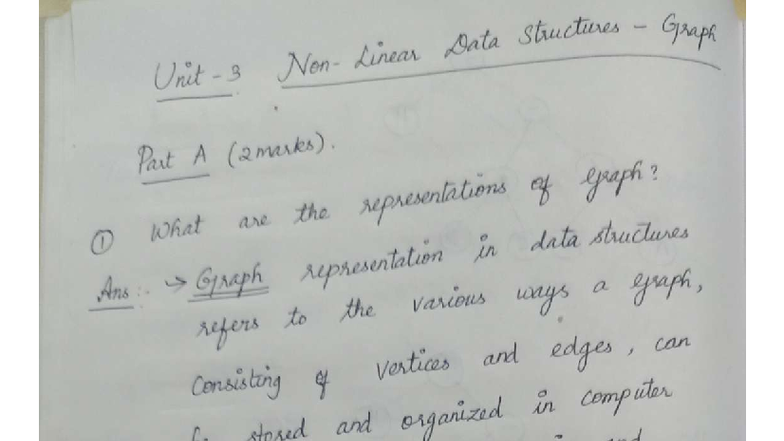 Unit - 3 Non-Linear Data Structures - Graph
Part A (2marks).
① What are the representations of graph?
Ans:- → Graph representation in data structures
refers to the various ways a graph,
Consisting of vertices and edges, can
stored and organized in computer
and